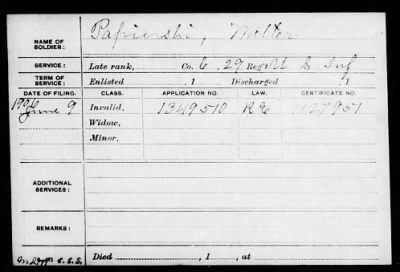 NAME OF SOLDIER: Papierski, Walter
SERVICE: Late rank, Co. C, 29 Reg't U S Inf
TERM OF SERVICE: Enlisted , 1 Discharged , 1
DATE OF FILING. CLASS. APPLICATION NO. LAW. CERTIFICATE NO.
June 9 Invalid, 1349510 1127951
Widow,
Minor,
ADDITIONAL SERVICES:
REMARKS:
Died , 1 , at